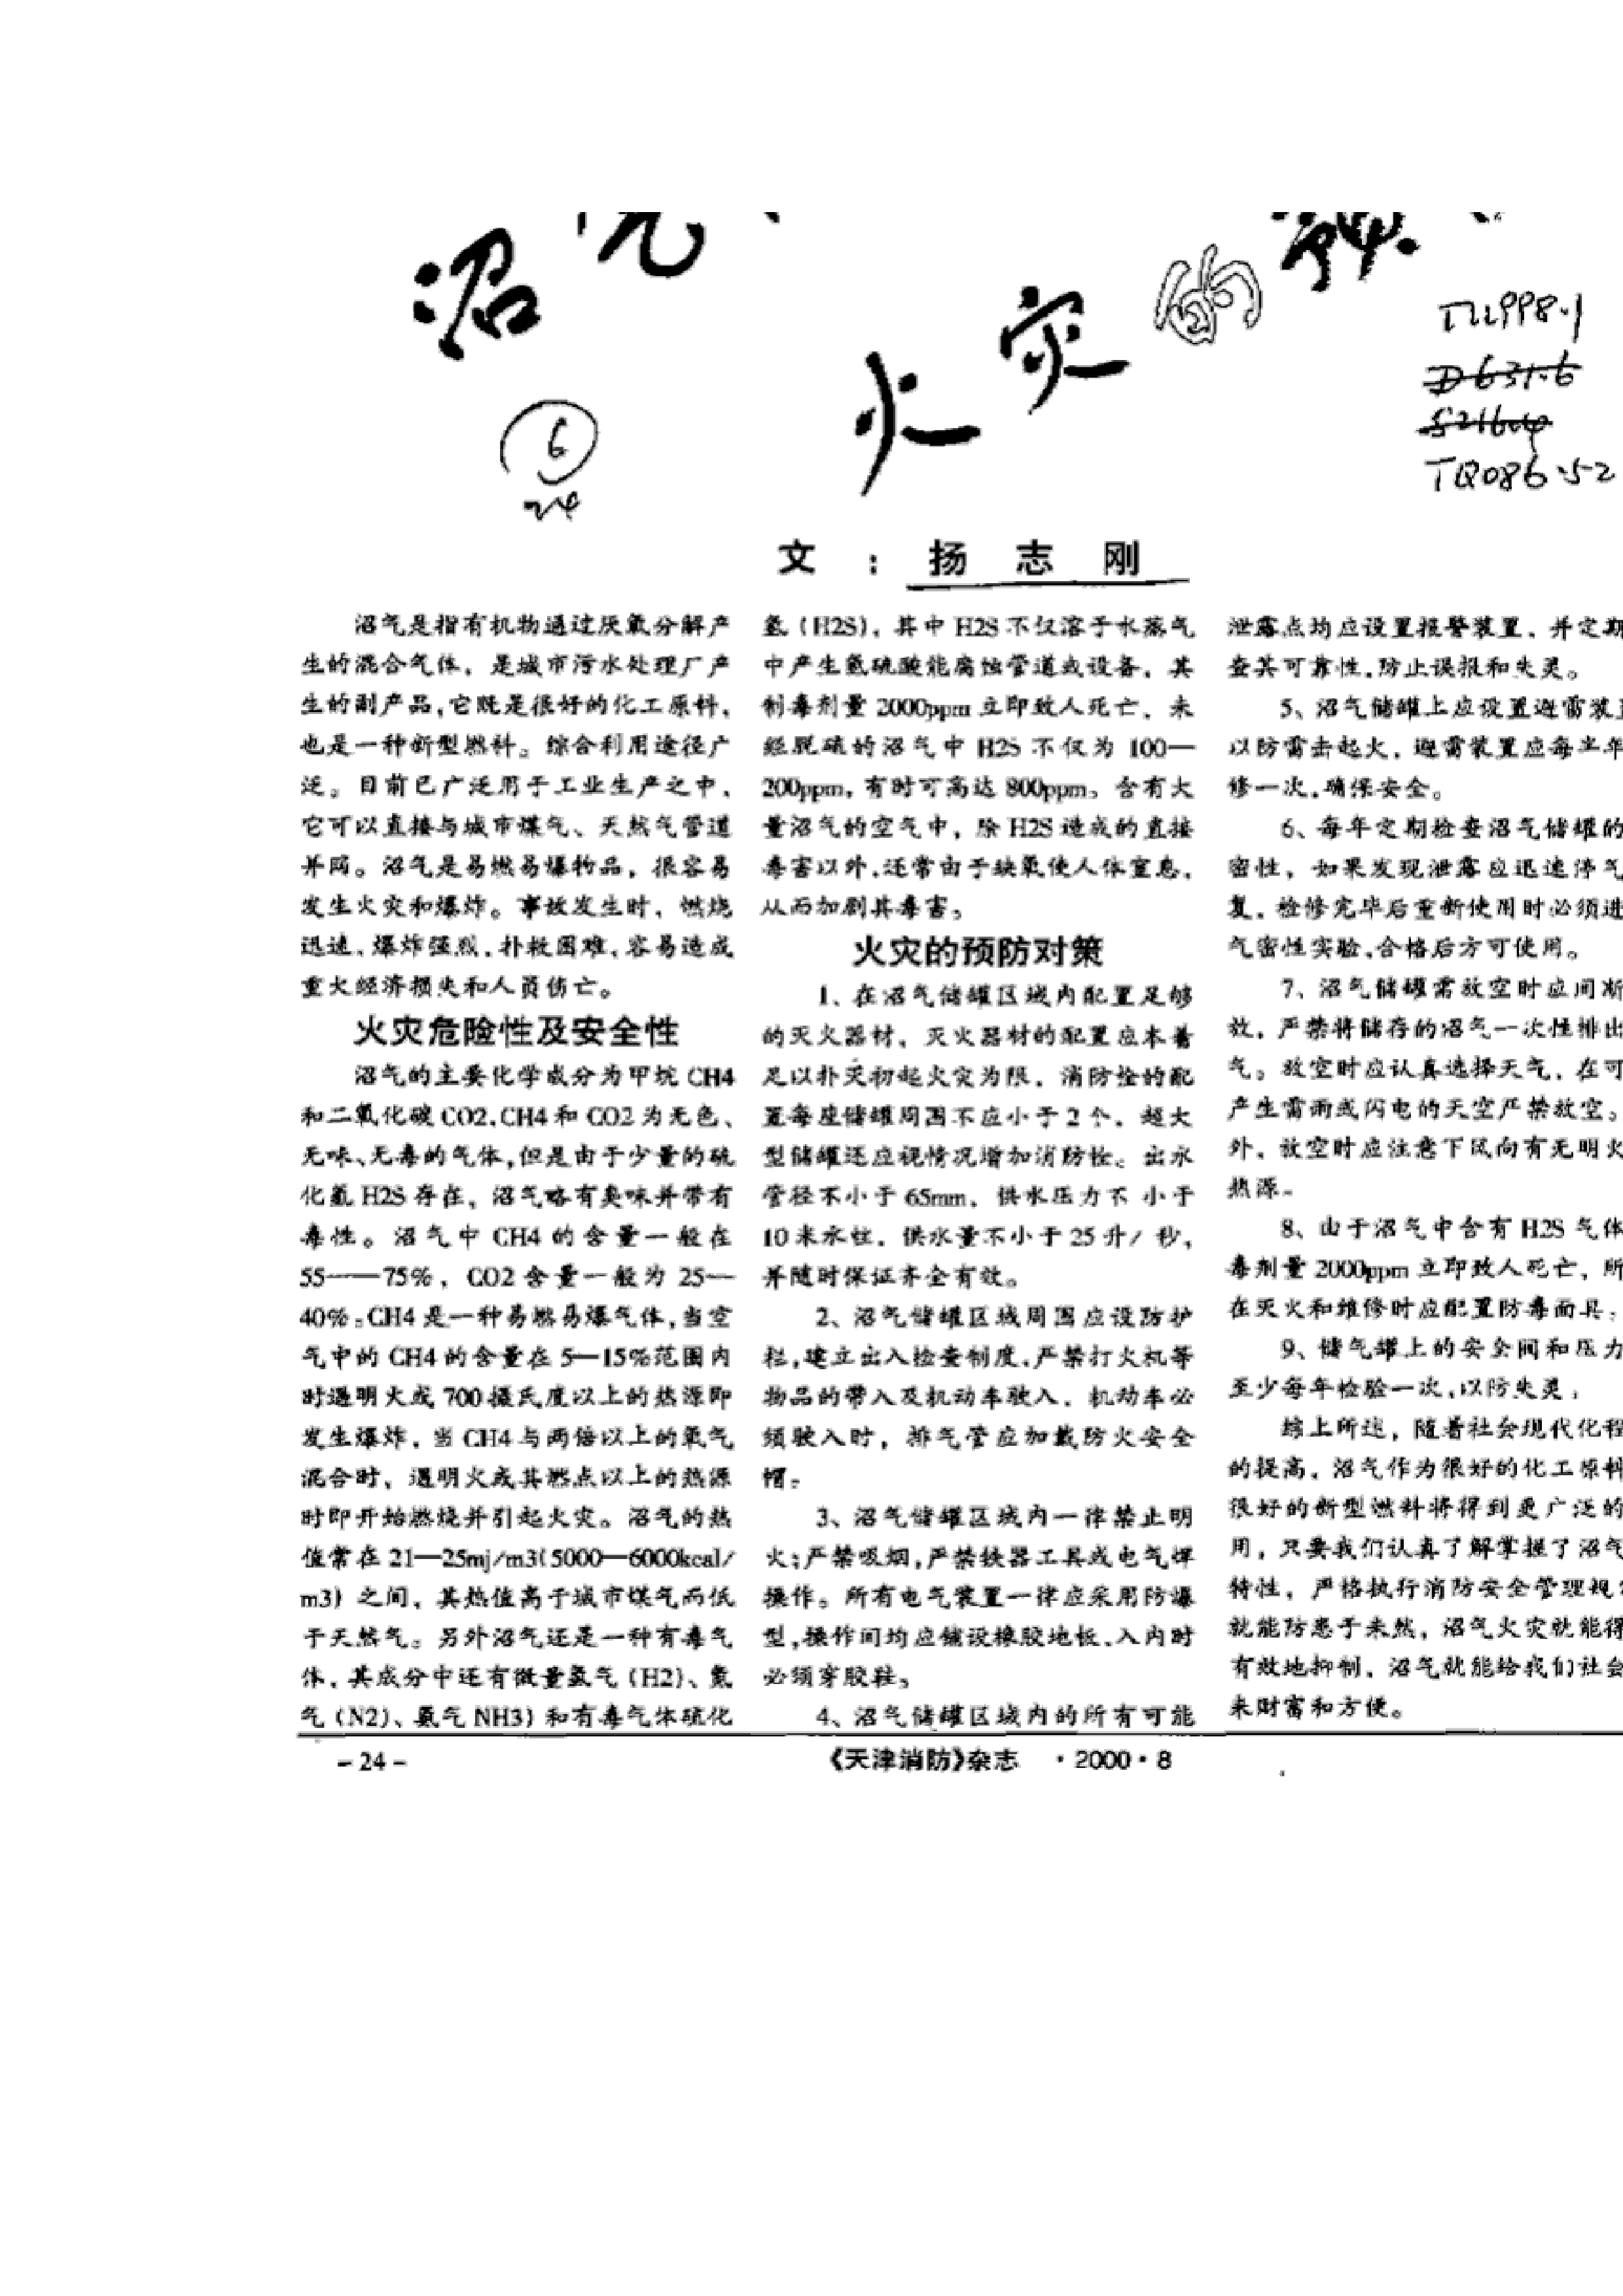 沼
火灾的
TU998.1
D631.6
S216.4
TQ086.52
6
24
文：扬志刚
沼气是指有机物通过厌氧分解产
生的混合气体，是城市污水处理厂产
生的副产品，它既是很好的化工原料，
也是一种新型燃料。综合利用途径广
泛。目前已广泛用于工业生产之中，
它可以直接与城市煤气、天然气管道
并网。沼气是易燃易爆物品，很容易
发生火灾和爆炸。事故发生时，燃烧
迅速，爆炸强烈，扑救困难，容易造成
重大经济损失和人员伤亡。
火灾危险性及安全性
沼气的主要化学成分为甲烷 CH4
和二氧化碳 CO2，CH4 和 CO2 为无色、
无味、无毒的气体，但是由于少量的硫
化氢 H2S 存在，沼气略有臭味并带有
毒性。沼气中 CH4 的含量一般在
55——75%，CO2 含量一般为 25—
40%。CH4 是一种易燃易爆气体，当空
气中的 CH4 的含量在 5—15%范围内
时遇明火或 700 摄氏度以上的热源即
发生爆炸，当 CH4 与两倍以上的氧气
混合时，遇明火或其燃点以上的热源
时即开始燃烧并引起火灾。沼气的热
值常在 21—25mj/m3(5000—6000kcal/
m3) 之间，其热值高于城市煤气而低
于天然气。另外沼气还是一种有毒气
体，其成分中还有微量氢气 (H2)、氮
气 (N2)、氨气 NH3) 和有毒气体硫化
氢 (H2S)，其中 H2S 不仅溶于水蒸气
中产生氢硫酸能腐蚀管道或设备，其
制毒剂量 2000ppm 立即致人死亡，未
经脱硫的沼气中 H2S 不仅为 100—
200ppm，有时可高达 800ppm。含有大
量沼气的空气中，除 H2S 造成的直接
毒害以外，还常由于缺氧使人体窒息，
从而加剧其毒害。
火灾的预防对策
1、在沼气储罐区域内配置足够
的灭火器材，灭火器材的配置应本着
足以扑灭初起火灾为限，消防栓的配
置每座储罐周围不应小于 2 个，超大
型储罐还应视情况增加消防栓。出水
管径不小于 65mm，供水压力不 小于
10 米水柱，供水量不小于 25 升/ 秒，
并随时保证齐全有效。
2、沼气储罐区域周围应设防护
栏，建立出入检查制度，严禁打火机等
物品的带入及机动车驶入，机动车必
须驶入时，排气管应加戴防火安全
帽。
3、沼气储罐区域内一律禁止明
火；严禁吸烟，严禁铁器工具或电气焊
操作。所有电气装置一律应采用防爆
型，操作间均应铺设橡胶地板，入内时
必须穿胶鞋。
4、沼气储罐区域内的所有可能
泄露点均应设置报警装置，并定期
查其可靠性，防止误报和失灵。
5、沼气储罐上应设置避雷装
以防雷击起火，避雷装置应每半年
修一次，确保安全。
6、每年定期检查沼气储罐的
密性，如果发现泄露应迅速停气
复，检修完毕后重新使用时必须进
气密性实验，合格后方可使用。
7、沼气储罐需放空时应间断
放，严禁将储存的沼气一次性排出
气。放空时应认真选择天气，在可
产生雷雨或闪电的天空严禁放空。
外，放空时应注意下风向有无明火
热源。
8、由于沼气中含有 H2S 气体
毒剂量 2000ppm 立即致人死亡，所
在灭火和维修时应配置防毒面具；
9、储气罐上的安全阀和压力
至少每年检验一次，以防失灵；
综上所述，随着社会现代化程
的提高，沼气作为很好的化工原料
很好的新型燃料将得到更广泛的
用，只要我们认真了解掌握了沼气
特性，严格执行消防安全管理规
就能防患于未然，沼气火灾就能得
有效地抑制，沼气就能给我们社会
来财富和方便。
－24－
《天津消防》杂志 ·2000·8